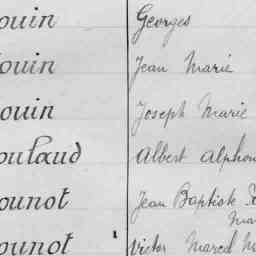 ouin Georges
ouin Jean Marie
ouin Joseph Marie
oulaud Albert Alphon
ounot Jean Baptiste
Ma
ounot Victor Marcel M